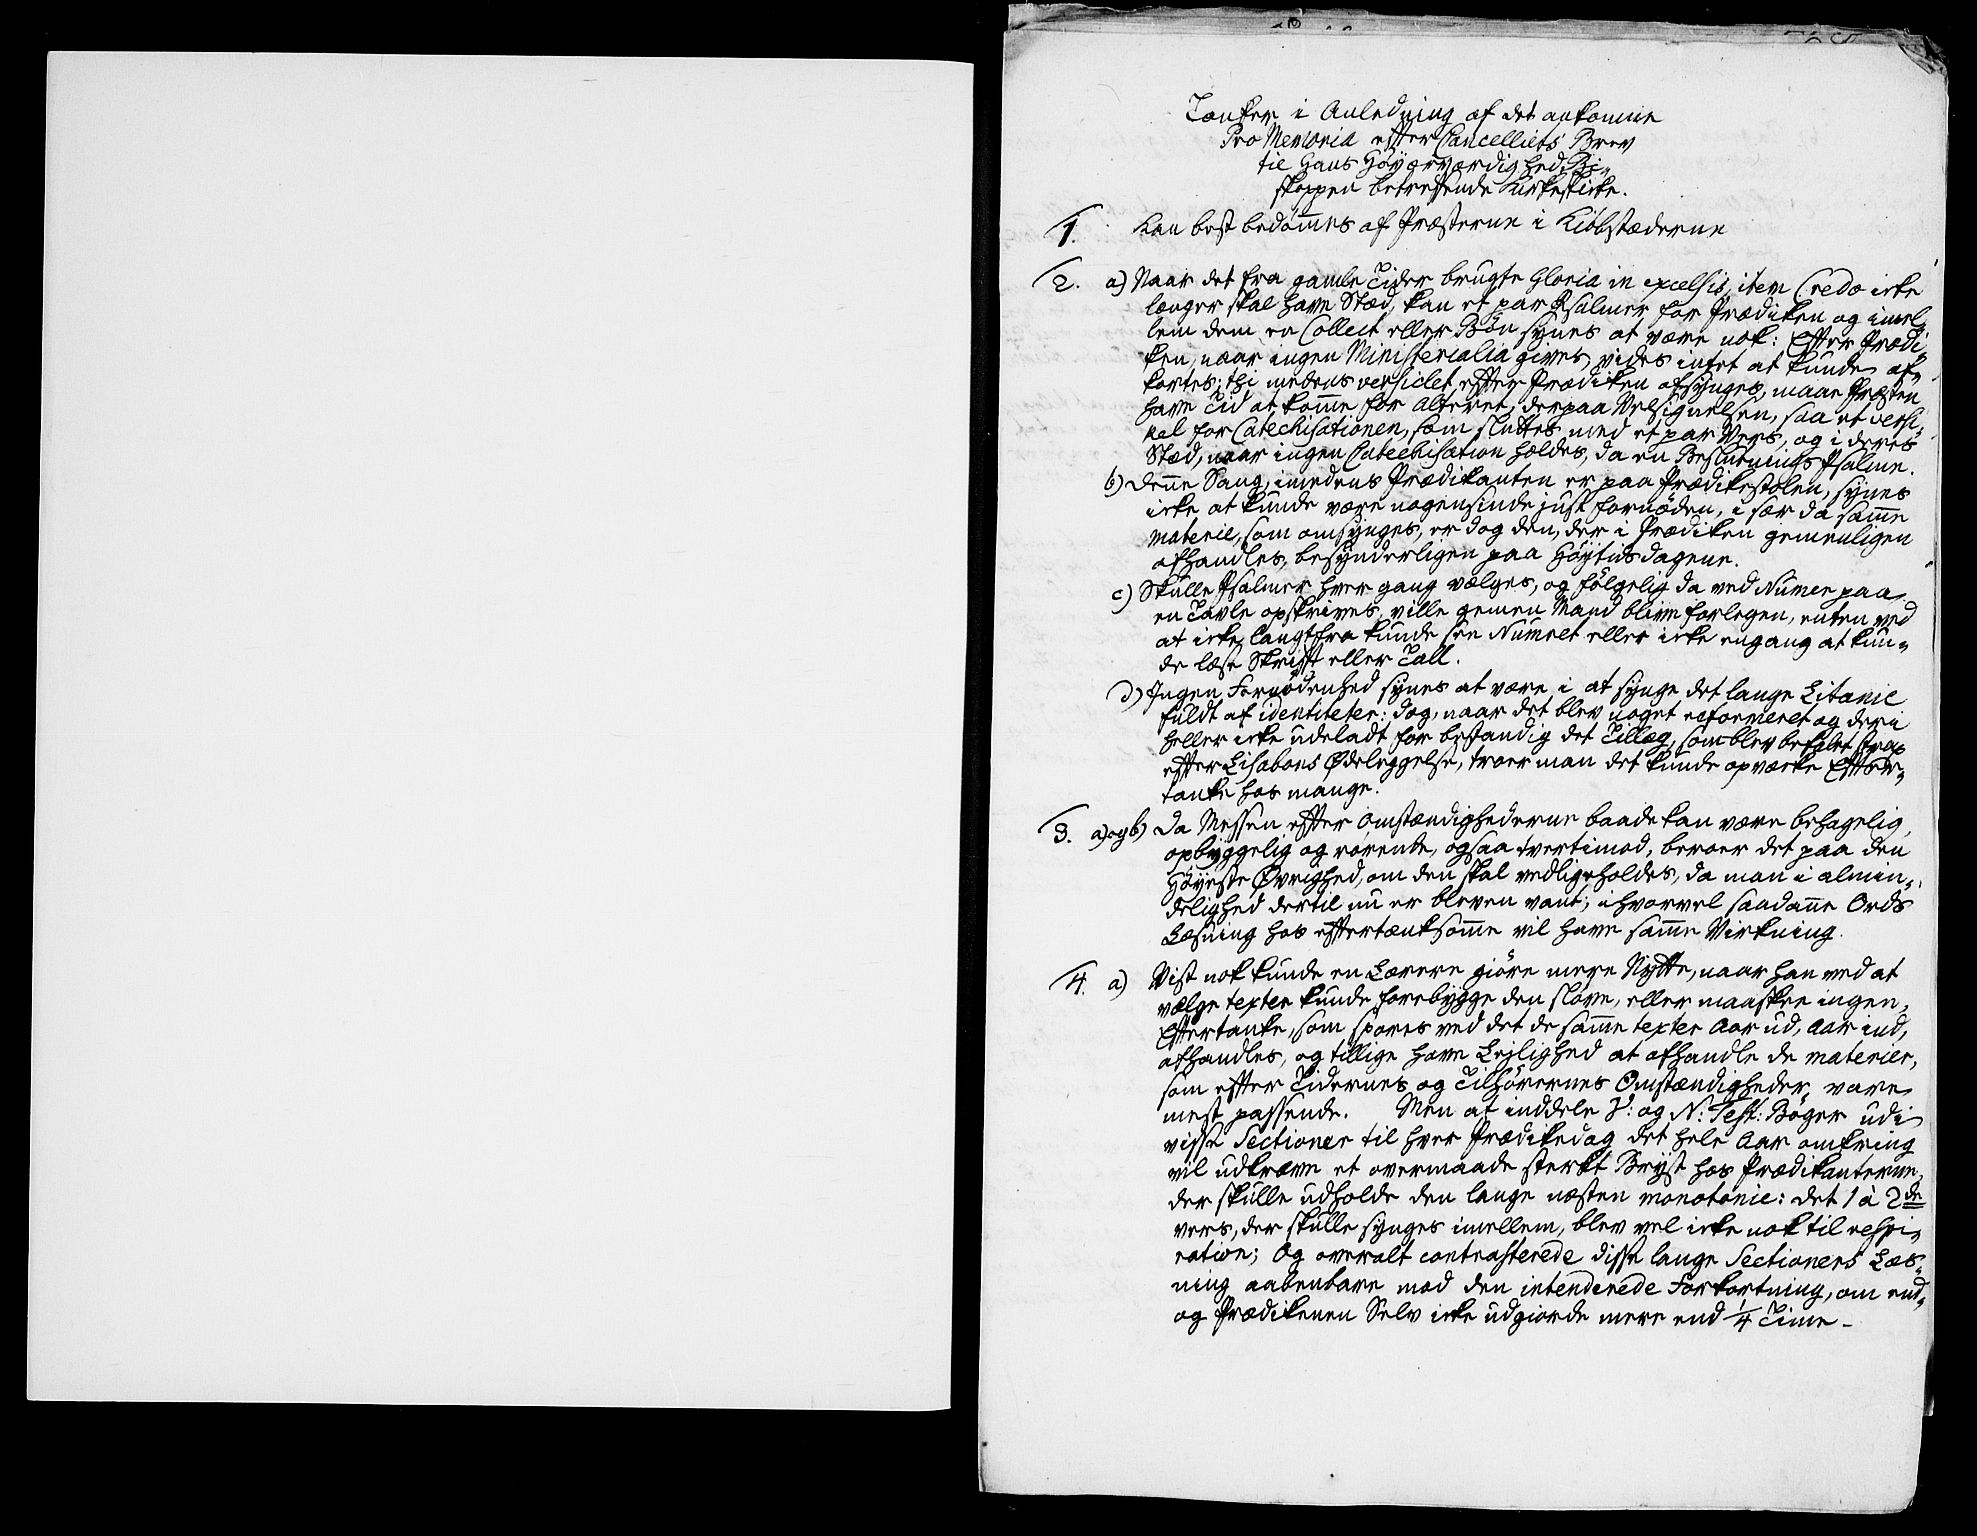 Tanker i Anledning af det ankomne
Pro Memoria efter Cancelliets Brev
til Hans Höyærværdighed Bi-
skoppen betreffende Kirkeskicke.
1. Kan best bedömmes af Præsterne i Kiöbstæderne
2. a) Naar det fra gamle Tider brugte Gloria in excelsis, item Credo icke
længer skal have Stæd, kan et par Psalmer for Prædiken og imel-
lem dem en Collect eller Bön synes at være nok: Efter Prædi-
ken, naar ingen Ministerialia gives, vides intet at kunde af-
kortes; thi medens versiclet efter Prædiken afsynges, maae Præsten
have Tid at komme for Alteret; derpaa Velsignelsen, saa et versi-
kel for Catechisationen, som sluttes med et par Vers, og i deres
Stæd, naar ingen Catechisation holdes, da en Beslutnings Psalme.
b) Denne Sang, imedens Prædikanten er paa Prædikestolen, synes
icke at kunde være nogensinde just fornöden, i sær da samme
materie, som omsynges, er dog den, der i Prædiken gemenligen
afhandles, besynderligen paa Höytids dagene.
c) Skulle Psalmer hver gang vælges, og fölgelig da ved Numer paa
en Tavle opskrives, ville gemen Mand blive forlegen, enten ved
at icke langt fra kunde see Numret eller icke engang at kun-
de læse Skrifft eller Tall.
d) Ingen Fornödenhed synes at være i at synge det lange Litanie
fuldt af identiteter: dog, naar det blev noget reformeret og deri
heller icke udeladt for bestandig det Tillæg, som blev befalet strax
efter Lisabons Ödeleggelse, troer man det kunde opvæcke Efter-
tanke hos mange.
3. a) og b) Da Messen efter Omstændighederne baade kan være behagelig,
opbyggelig og rörende, ogsaa tvertimod, beroer det paa den
Höyeste Övrighed, om den skal vedligeholdes, da man i almin-
delighed dertil nu er bleven vant; ihvorvel saadanne Ords
Læsning hos eftertænksomme vil have samme Virkning.
4. a) Vist nok kunde en Lærere giöre mere Nytte, naar han ved at
vælge texter kunde forebygge den slöve, eller maaskee ingen
Eftertanke, som spores ved det de samme texter Aar ud, Aar ind,
afhandles, og tillige have Lejlighed at afhandle de materier,
som efter Tidernes og Tilhörernes Omstændigheder vare
mest passende. Men at inddele V: og N: Test: Böger udi
visse Sectioner til hver Prædikedag det hele Aar omkring
vil udkræve et overmaade sterkt Bryst hos Prædikanterne,
der skulle udholde den lange næsten monotonie: det 1 à 2de
vers, der skulle synges imellem, blev vel icke nok til respi-
ration; Og overalt contrasterede disse lange Sectioners Læs-
ning aabenbare mod den intenderede Forkortning, om end-
og Prædikenen Selv icke udgiorde mere end 1/4 Time -